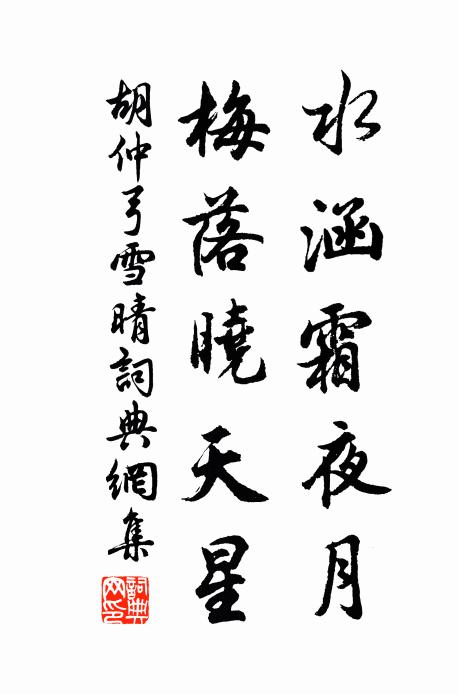 水涵霜夜月
梅落曉天星
胡仲弓雪晴詞典網集
詞典网印